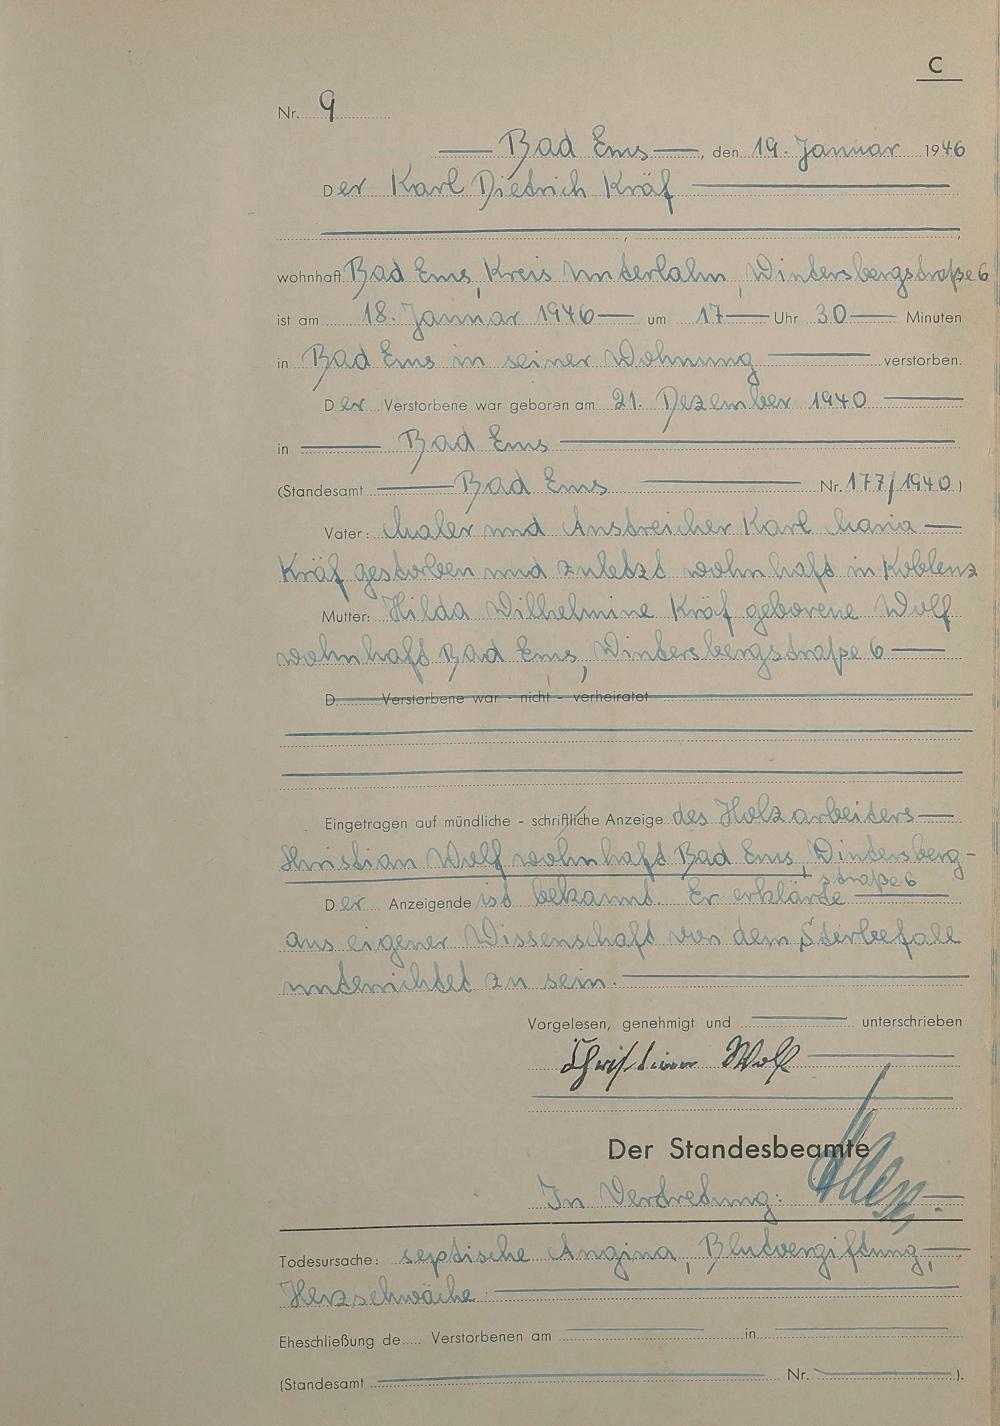 C
Nr. 9
Bad Ems, den 19. Januar 1946
Der Karl Dietrich Kräf
wohnhaft Bad Ems, Kreis Unterlahn, Wintersbergstraße 6
ist am 18. Januar 1946 um 17 Uhr 30 Minuten
in Bad Ems in seiner Wohnung verstorben.
Der Verstorbene war geboren am 21. Dezember 1940
in Bad Ems
(Standesamt Bad Ems Nr. 177/1940)
Vater: Maler und Anstreicher Karl Maria
Kräf gestorben und zuletzt wohnhaft in Koblenz
Mutter: Hilda Wilhelmine Kräf geborene Wolf
wohnhaft Bad Ems, Wintersbergstraße 6
D Verstorbene war - nicht - verheiratet
Eingetragen auf mündliche - schriftliche Anzeige des Holzarbeiters
Christian Wolf wohnhaft Bad Ems, Wintersberg-
straße 6
Der Anzeigende ist bekannt. Er erklärte
aus eigener Wissenschaft von dem Sterbefalle
unterrichtet zu sein.
Vorgelesen, genehmigt und unterschrieben
Christian Wolf
Der Standesbeamte
In Vertretung:
Todesursache: septische Angina, Blutvergiftung,
Herzschwäche
Eheschließung de..... Verstorbenen am in
(Standesamt Nr. ).